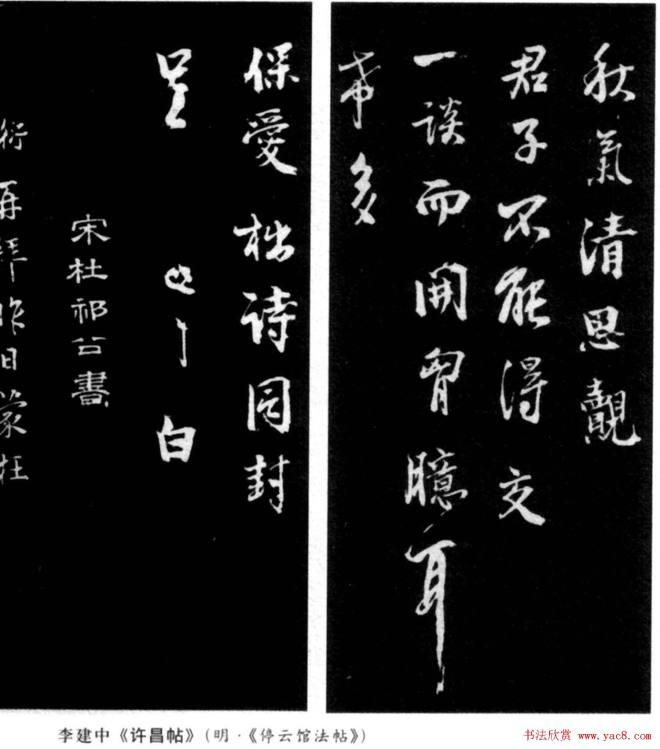 秋氣清思覿
君子不能得交
一談而開胷臆耳
希多
保愛拙詩同封
呈 白
宋杜祁公書
衍再拜昨日蒙枉
李建中《许昌帖》(明·《停云馆法帖》)
书法欣赏 www.yac8.com